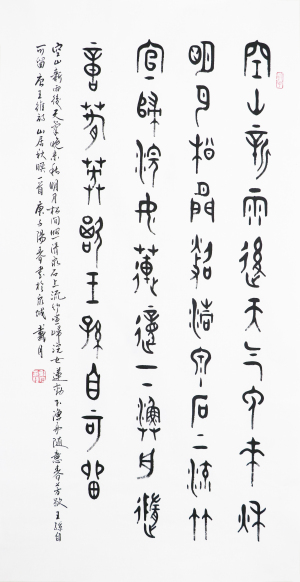 空山新雨後天气晚來秋
明月松間照清泉石二流竹
宣歸浣女蓮動二漁舟隨
意春芳歇王孫自可留
空山新雨後天氣晚来秋明月松間照清泉石上流竹喧歸浣女蓮動下漁舟隨意春芳歇王孫自
可留唐王維詩山居秋暝一首庚子陽春書於京城戴月